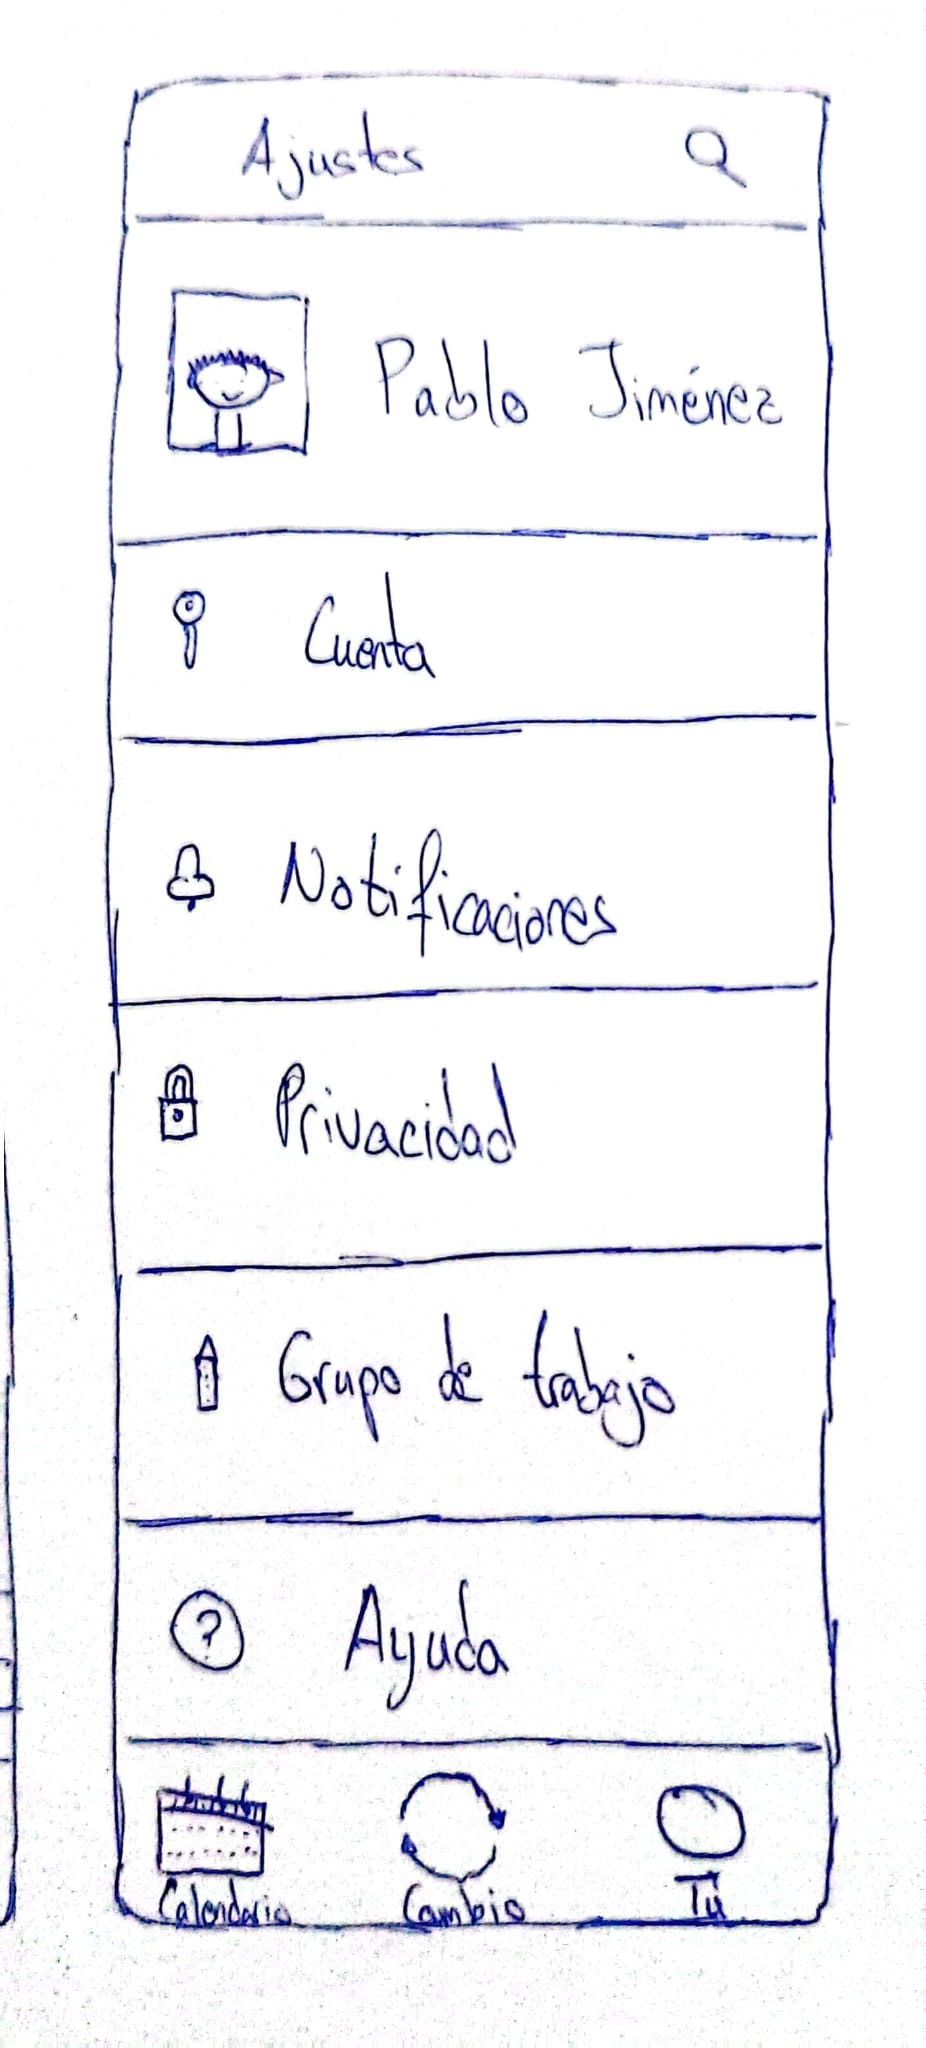 Ajustes
Pablo Jiménez
Cuenta
Notificaciones
Privacidad
Grupo de trabajo
?
Ayuda
Calendario Cambio Tú